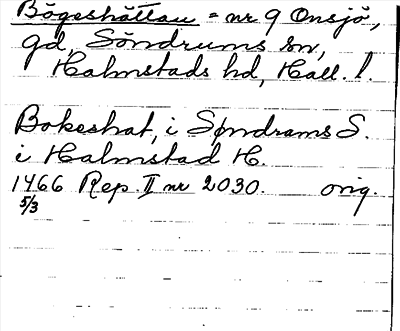 Bögeshättan = nr 9 Onsjö,
gd, Söndrums sn,
Halmstads hd, Hall. l.
Bokeshat, i Søndrams S.
i Halmstad H.
1466 Rep. II nr 2030. orig.
5/3